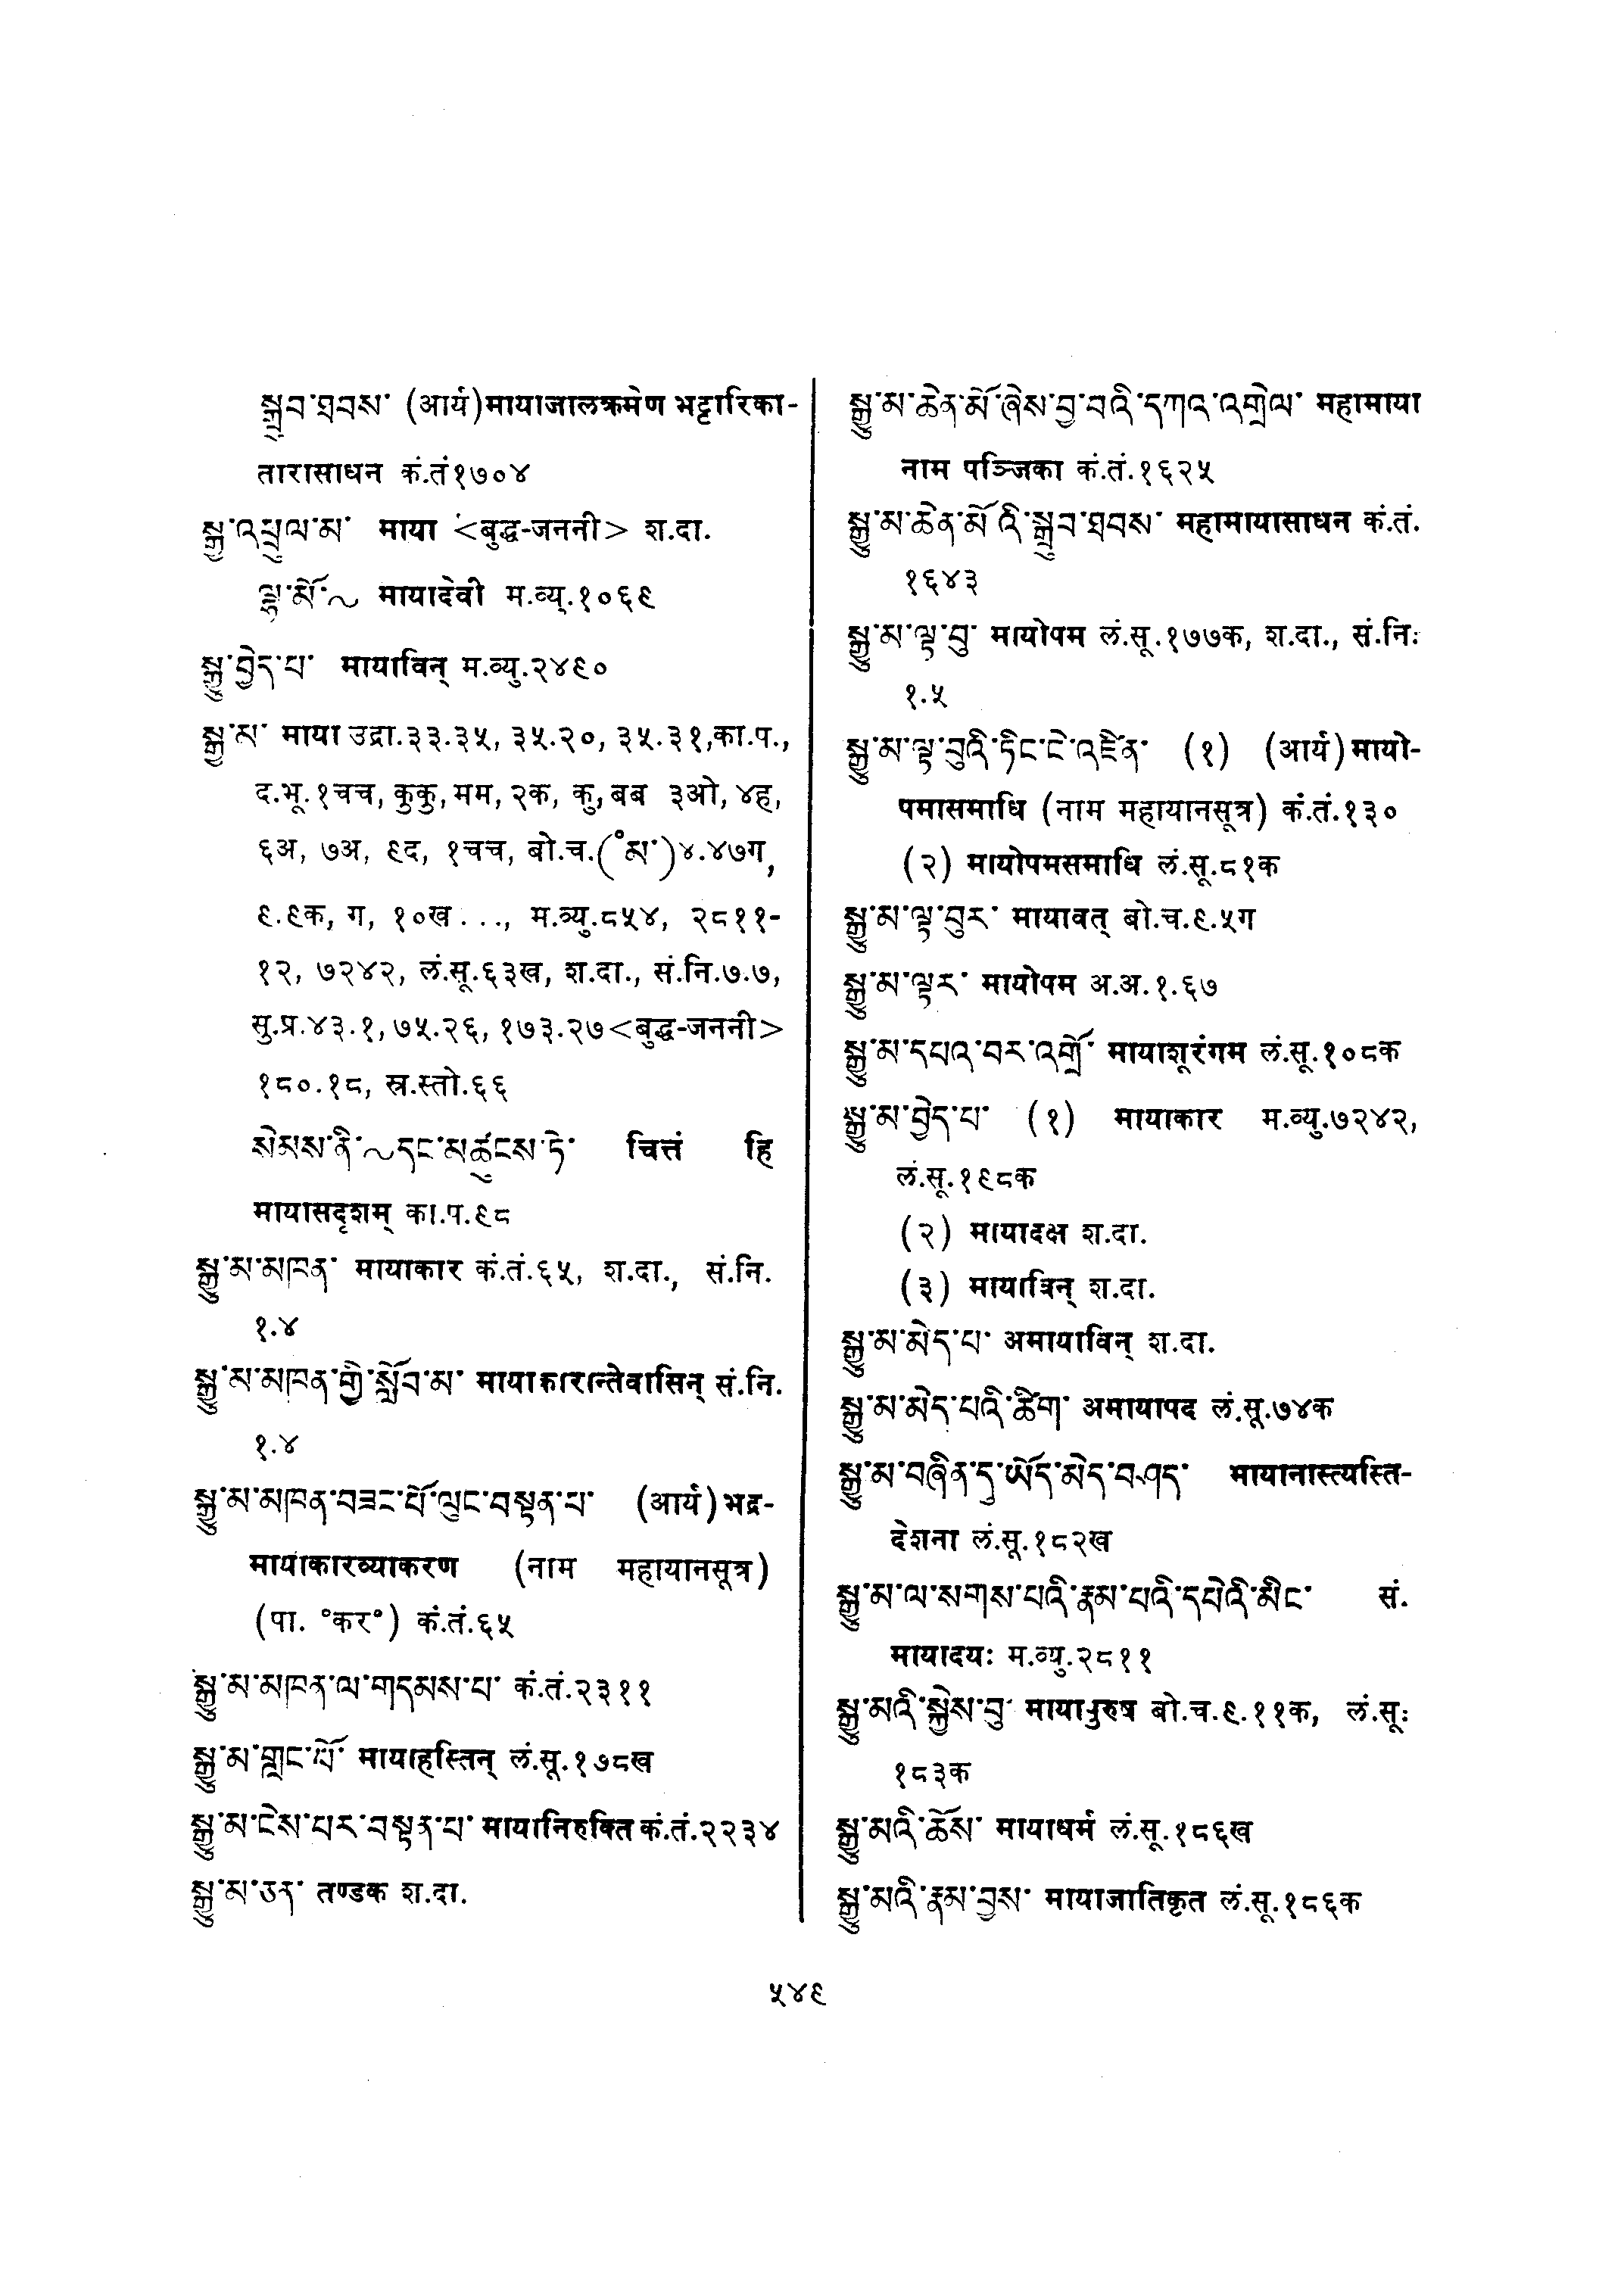 སྒྲུབ་ཐབས་ (आर्य)मायाजालक्रमेण भट्टारिका-
तारासाधन कं.तं१७०४
སྒྱུ་འཕྲུལ་མ་ माया <बुद्ध-जननी> श.दा.
ལྷ་མོ་~ मायादेवी म.व्यु.१०६९
སྒྱུ་བྱེད་པ་ मायाविन् म.व्यु.२४९०
སྒྱུ་མ་ माया उद्रा.३३.३५, ३५.२०, ३५.३१,का.प.,
द.भू.१चच, कुकु, मम, २क, कु, बब ३ओ, ४ह,
६अ, ७अ, ९द, १चच, बो.च.(°མ་)४.४७ग,
९.९क, ग, १०ख ..., म.व्यु.८५४, २८११-
१२, ७२४२, लं.सू.६३ख, श.दा., सं.नि.७.७,
सु.प्र.४३.१, ७५.२६, १७३.२७<बुद्ध-जननी>
१८०.१८, स्र.स्तो.६६
སེམས་ནི་~དང་མཚུངས་ཏེ་ चित्तं हि
मायासदृशम् का.प.९८
སྒྱུ་མ་མཁན་ मायाकार कं.तं.६५, श.दा., सं.नि.
१.४
སྒྱུ་མ་མཁན་གྱི་སློབ་མ་ मायाकारान्तेवासिन् सं.नि.
१.४
སྒྱུ་མ་མཁན་བཟང་པོ་ལུང་བསྟན་པ་ (आर्य)भद्र-
मायाकारव्याकरण (नाम महायानसूत्र)
(पा. °कर°) कं.तं.६५
སྒྱུ་མ་མཁན་ལ་གདམས་པ་ कं.तं.२३११
སྒྱུ་མ་གླང་པོ་ मायाहस्तिन् लं.सू.१७८ख
སྒྱུ་མ་ངེས་པར་བསྟན་པ་ मायानिरुक्ति कं.तं.२२३४
སྒྱུ་མ་ཅན་ तण्डक श.दा.
སྒྱུ་མ་ཆེན་མོ་ཞེས་བྱ་བའི་དཀའ་འགྲེལ་ महामाया
नाम पञ्जिका कं.तं.१६२५
སྒྱུ་མ་ཆེན་མོ་འི་སྒྲུབ་ཐབས་ महामायासाधन कं.तं.
१६४३
སྒྱུ་མ་ལྟ་བུ་ मायोपम लं.सू.१७७क, श.दा., सं.नि.
१.५
སྒྱུ་མ་ལྟ་བུའི་ཏིང་ངེ་འཛིན་ (१) (आर्य)मायो-
पमासमाधि (नाम महायानसूत्र) कं.तं.१३०
(२) मायोपमसमाधि लं.सू.८१क
སྒྱུ་མ་ལྟ་བུར་ मायावत् बो.च.९.५ग
སྒྱུ་མ་ལྟར་ मायोपम अ.अ.१.६७
སྒྱུ་མ་དཔའ་བར་འགྲོ་ मायाशूरंगम लं.सू.१०८क
སྒྱུ་མ་བྱེད་པ་ (१) मायाकार म.व्यु.७२४२,
लं.सू.१९८क
(२) मायादक्ष श.दा.
(३) मायाविन् श.दा.
སྒྱུ་མ་མེད་པ་ अमायाविन् श.दा.
སྒྱུ་མ་མེད་པའི་ཚིག་ अमायापद लं.सू.७४क
སྒྱུ་མ་བཞིན་དུ་ཡོད་མེད་བཤད་ मायानास्त्यस्ति-
देशना लं.सू.१८२ख
སྒྱུ་མ་ལ་སགས་པའི་རྣམ་པའི་དཔེའི་མིང་ सं.
मायादयः म.व्यु.२८११
སྒྱུ་མའི་སྐྱེས་བུ་ मायापुरुष बो.च.९.११क, लं.सू.
१८३क
སྒྱུ་མའི་ཆོས་ मायाधर्म लं.सू.१८६ख
སྒྱུ་མའི་རྣམ་བྱས་ मायाजातिकृत लं.सू.१८६क
५४९